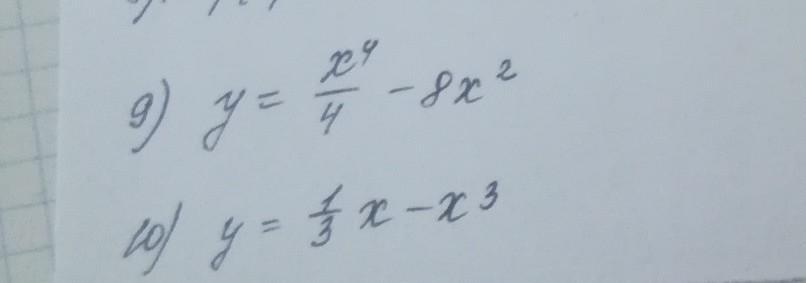 9) y = x⁴/4 - 8x²
10) y = 1/3 x - x³